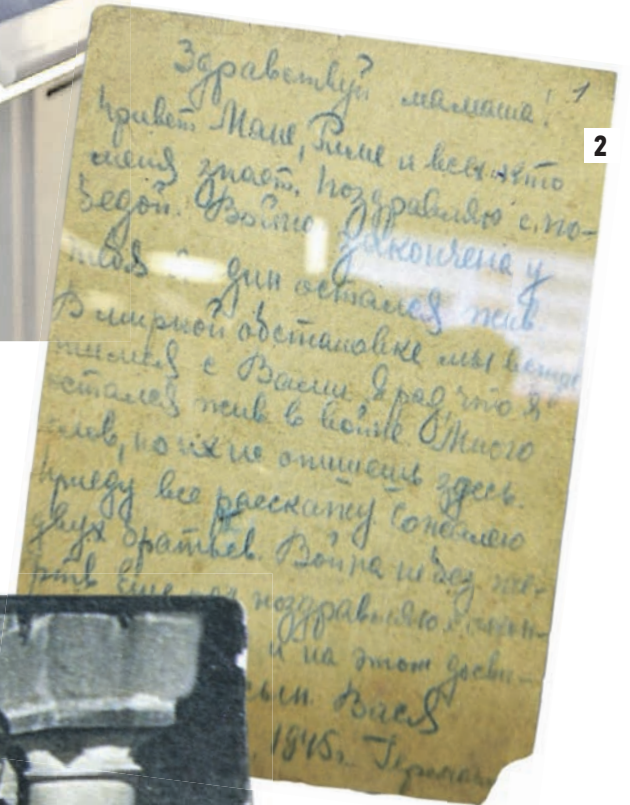 Здравствуй мамаша! 1
2
Привет Мане, Риме и всем кто
меня знает. Поздравляю с по-
бедой. Война закончена у
тебя один остался жив
В мирной обстановке мы
с Вами. Я рад, что я
остался жив в войне. Много
слов, но их не опишешь здесь.
Приеду все расскажу. Сожалею
двух братьев. Война не без же-
ртв Еще раз поздравляю с
и на этом досви-
сын. Вася
1945г. Германия